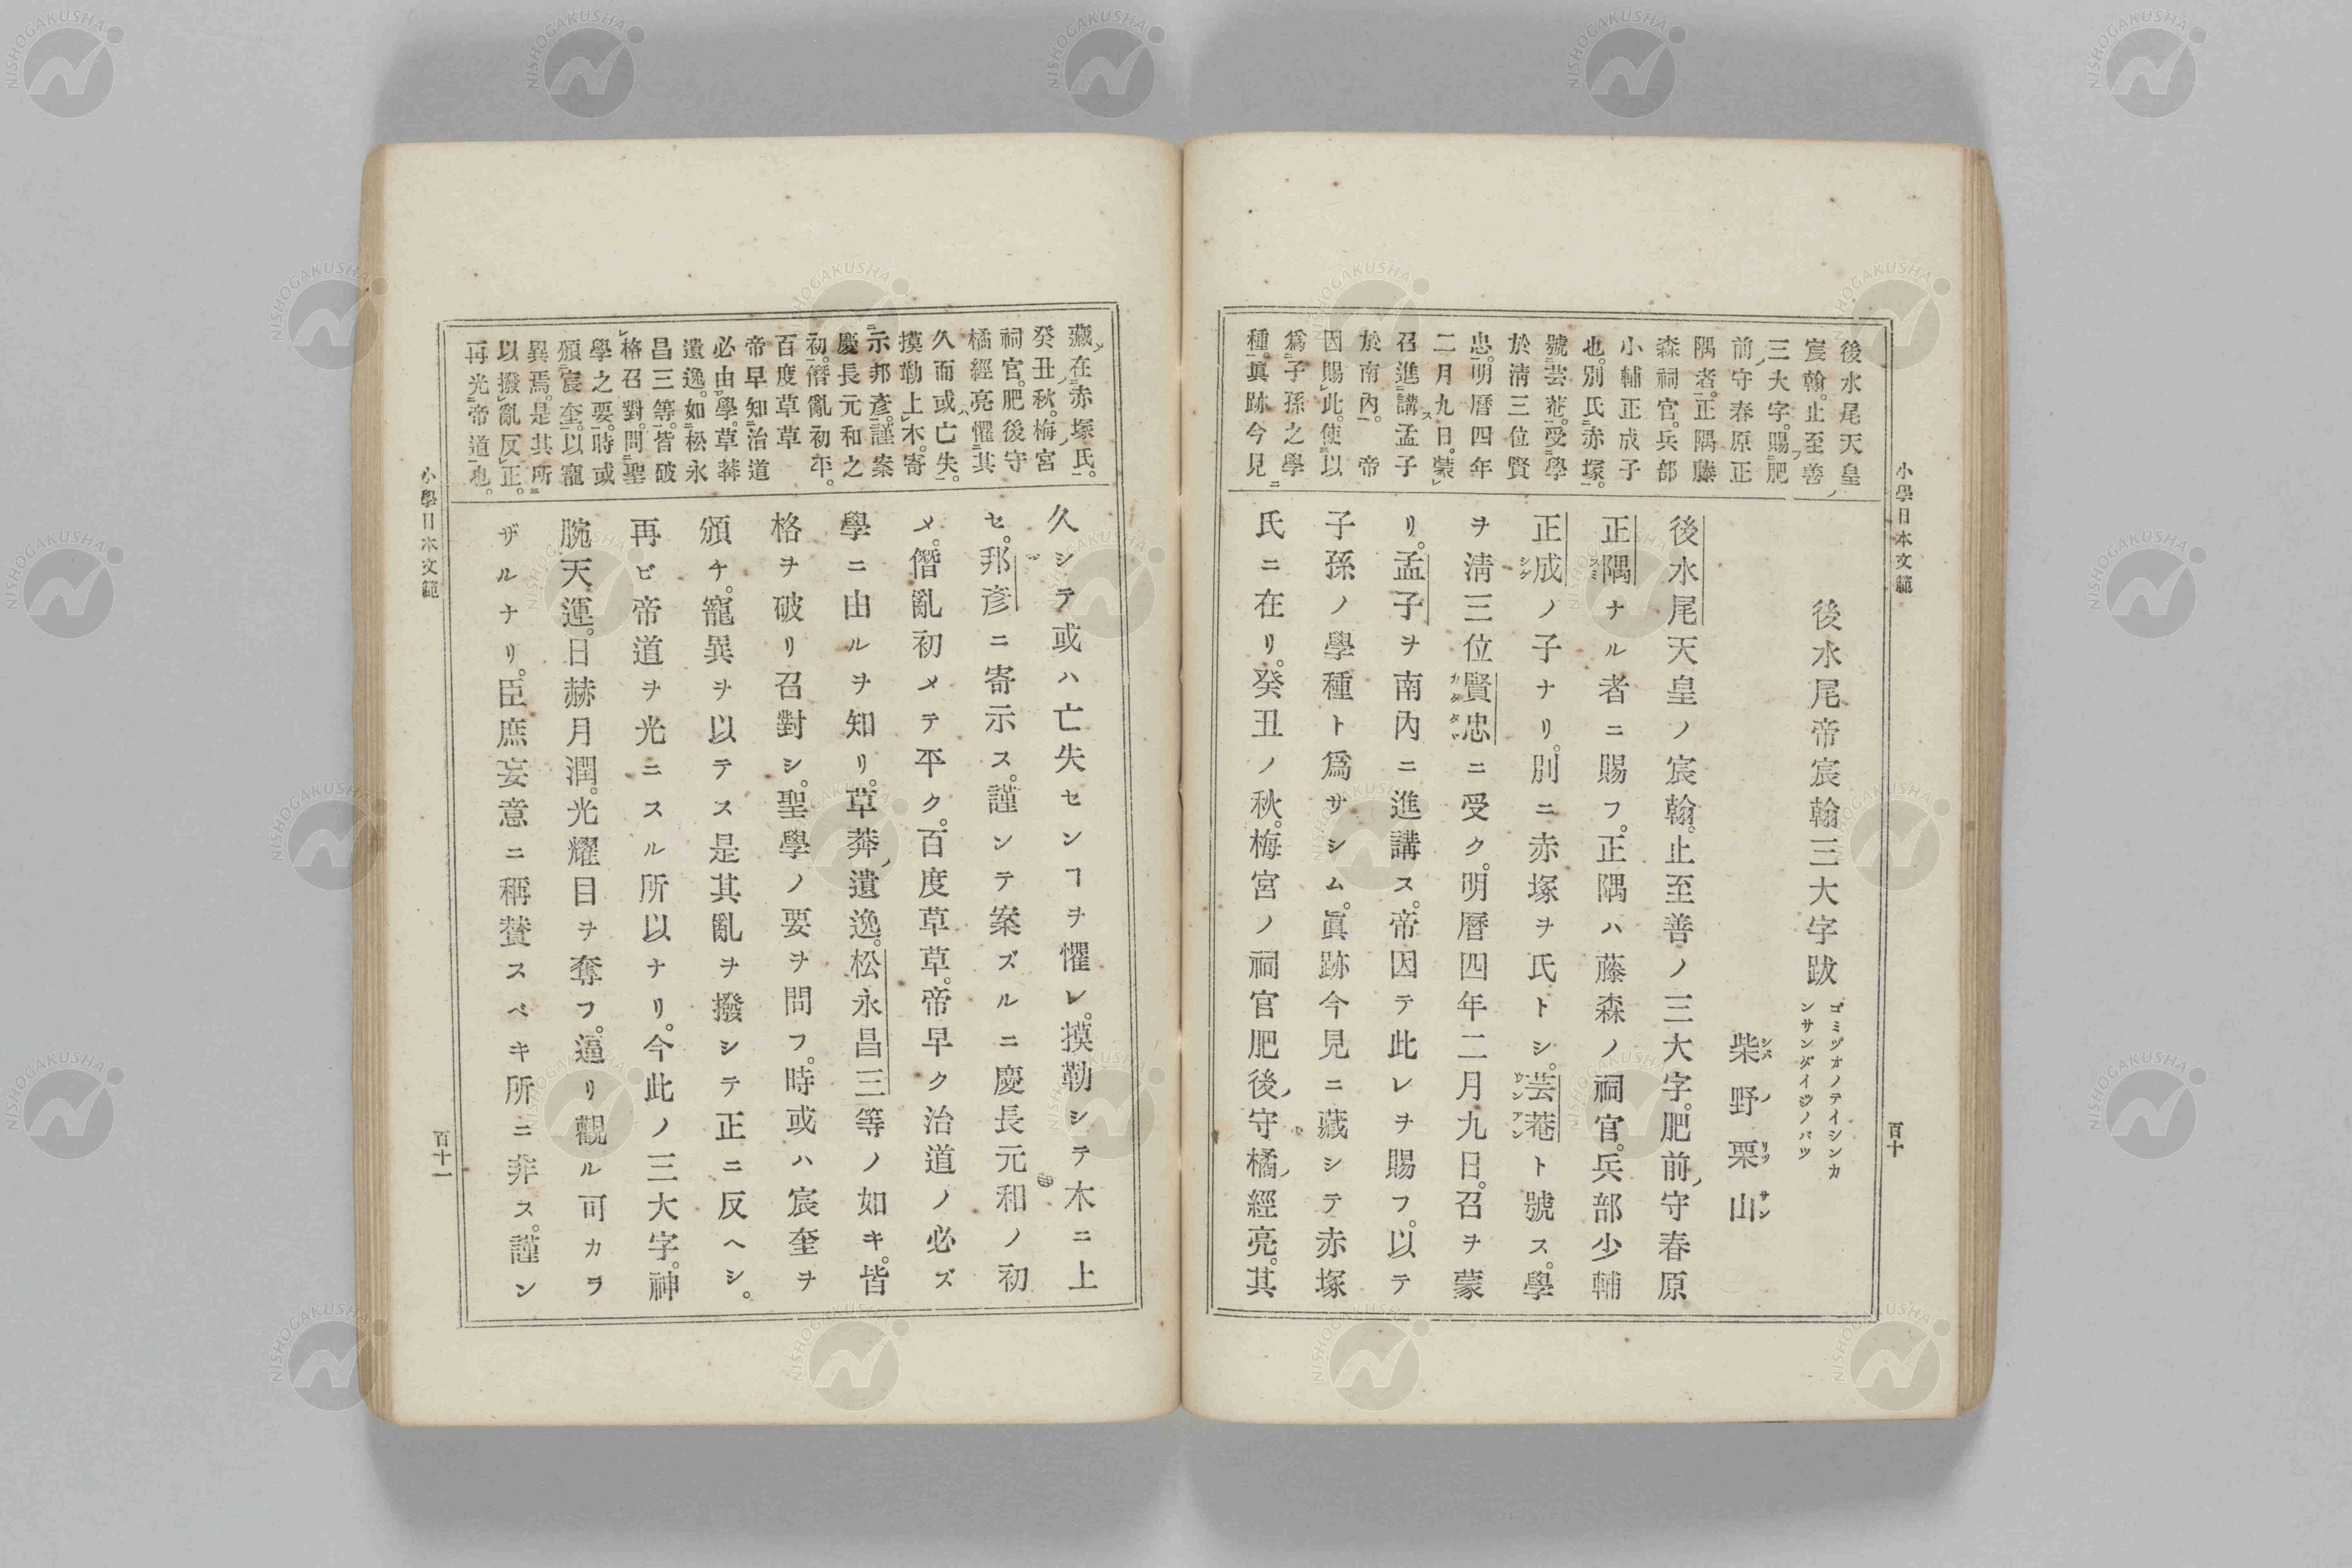 小學日本文範
百十
後水尾天皇
宸翰。止至善ノ
三大字。賜フ肥
前ノ守春原正
隅者。正隅藤
森祠官。兵部
小輔正成子
也。別氏赤塚。
號芸菴。受學
於淸三位賢
忠。明曆四年
二月九日。蒙
召進講ス孟子
於南內。帝
因賜此。使以
爲子孫之學
種。眞跡今見
後水尾帝宸翰三大字跋
ゴミヅオノテイシンカ
ンサンダイジノバツ
柴野栗山
シバノリツサン
後水尾天皇ノ宸翰。止至善ノ三大字。肥前ノ守春原
正隅ナル者ニ賜フ。正隅ハ藤森ノ祠官。兵部少輔
正成ノ子ナリ。別ニ赤塚ヲ氏トシ。芸菴ト號ス。學
ヲ淸三位賢忠ニ受ク。明曆四年二月九日。召ヲ蒙
リ。孟子ヲ南內ニ進講ス。帝因テ此レヲ賜フ。以テ
子孫ノ學種ト爲サシム。眞跡今見ニ藏シテ赤塚
氏ニ在リ。癸丑ノ秋。梅宮ノ祠官肥後ノ守橘ノ經亮。其
藏ノ在赤塚氏。
癸丑ノ秋。梅ノ宮
祠官。肥後守
橘經亮懼其
久而或ハ亡失。
摸勒上木。寄
示邦彥。謹案
慶長元和之
初。僭亂初平。
百度草草
帝早知治道
必由學。草莽
遺逸。如松永
昌三等。皆破
格召對。問聖
學之要。時或
頒宸奎。以寵
異焉。是其所
以撥亂反正。
再光帝道也。
久シテ或ハ亡失センヿヲ懼レ。摸勒シテ木ニ上
セ。邦彥ニ寄示ス。謹ンテ案ズルニ慶長元和ノ初
メ。僭亂初メテ平ク。百度草草。帝早ク治道ノ必ズ
學ニ由ルヲ知リ。草莽ノ遺逸。松永昌三等ノ如キ。皆
格ヲ破リ召對シ。聖學ノ要ヲ問フ。時或ハ宸奎ヲ
頒チ。寵異ヲ以テス是其亂ヲ撥シテ正ニ反ヘシ。
再ビ帝道ヲ光ニスル所以ナリ。今此ノ三大字。神
腕天運。日赫月潤。光耀目ヲ奪フ。逼リ觀ル可カラ
ザルナリ。臣庶妄意ニ稱賛スベキ所ニ非ス。謹ン
小學日本文範
百十一